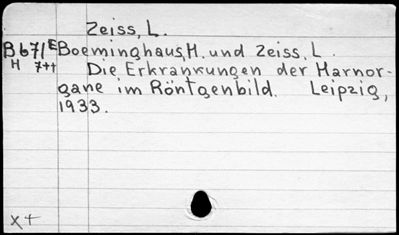 Zeiss, L.
B 671 E Boeminghaus, H. und Zeiss, L.
H 7++ Die Erkrankungen der Harnor-
gane im Röntgenbild. Leipzig,
1933.
X +